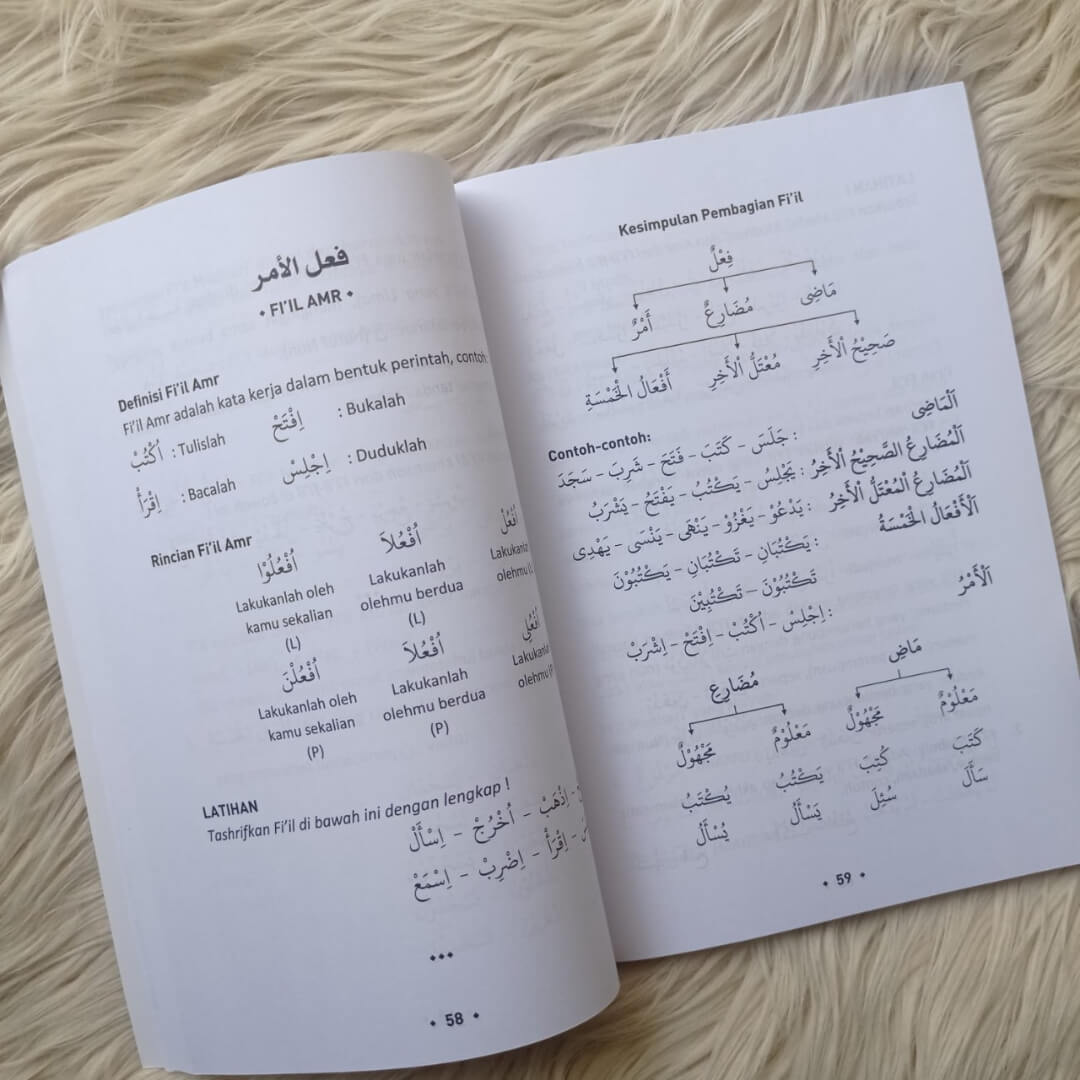 فعل الأمر
• FI'IL AMR •
Definisi Fi'il Amr
Fi'il Amr adalah kata kerja dalam bentuk perintah, contoh:
اُكْتُبْ : Tulislah اِفْتَحْ : Bukalah
اِقْرَأْ : Bacalah اِجْلِسْ : Duduklah
Rincian Fi'il Amr
اُفْعُلُوْا اُفْعُلاَ اُفْعُلْ
Lakukanlah oleh Lakukanlah
kamu sekalian olehmu berdua
(L) (L)
اُفْعُلْنَ اُفْعُلاَ اُفْعُلِي
Lakukanlah oleh Lakukanlah
kamu sekalian olehmu berdua
(P) (P)
LATIHAN
Tashrifkan Fi'il di bawah ini dengan lengkap !
اِذْهَبْ – اُخْرُجْ – اِسْأَلْ
اِقْرَأْ – اِضْرِبْ – اِسْمَعْ
• 58 •
Kesimpulan Pembagian Fi'il
فِعْلٌ
مَاضِى مُضَارِعٌ أَمْرٌ
صَحِيْحُ الْأَخِرِ مُعْتَلُّ الْأَخِرِ أَفْعَالُ الْخَمْسَةِ
Contoh-contoh:
اَلْمَاضِى : جَلَسَ – كَتَبَ – فَتَحَ – شَرِبَ – سَجَدَ
اَلْمُضَارِعُ الصَّحِيْحُ الْأَخِرُ : يَجْلِسُ – يَكْتُبُ – يَفْتَحُ – يَشْرَبُ
اَلْمُضَارِعُ الْمُعْتَلُّ الْأَخِرُ : يَدْعُوْ – يَغْزُوْ – يَنْهَى – يَنْسَى – يَهْدِى
اَلْأَفْعَالُ الْخَمْسَةُ : يَكْتُبَانِ – تَكْتُبَانِ – يَكْتُبُوْنَ
تَكْتُبُوْنَ – تَكْتُبِيْنَ
اَلْأَمْرُ : اِجْلِسْ – اُكْتُبْ – اِفْتَحْ – اِشْرَبْ
مَاضٍ مُضَارِع
مَعْلُوْمٌ مَجْهُوْلٌ مَعْلُوْمٌ مَجْهُوْلٌ
كَتَبَ كُتِبَ يَكْتُبُ يُكْتَبُ
سَأَلَ سُئِلَ يَسْأَلُ يُسْأَلُ
• 59 •